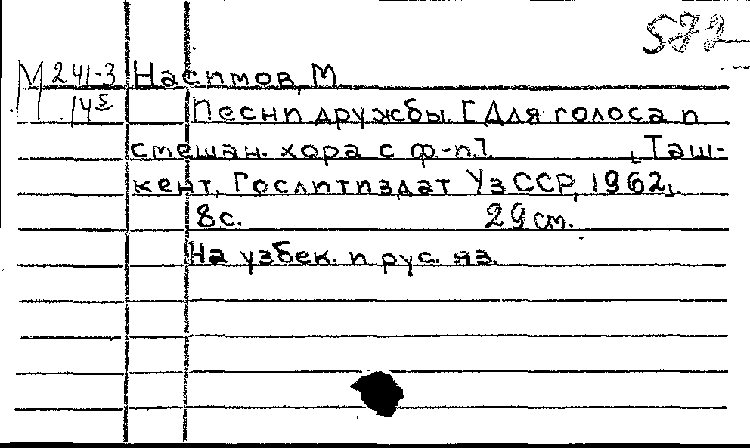 572
М 241-3 Насимов, М
145 Песни дружбы. [Для голоса и
смешан. хора с ф-п.]. [Таш-
кент, Гослитиздат УзССР, 1962].
8с. 29 см.
На узбек. и рус. яз.